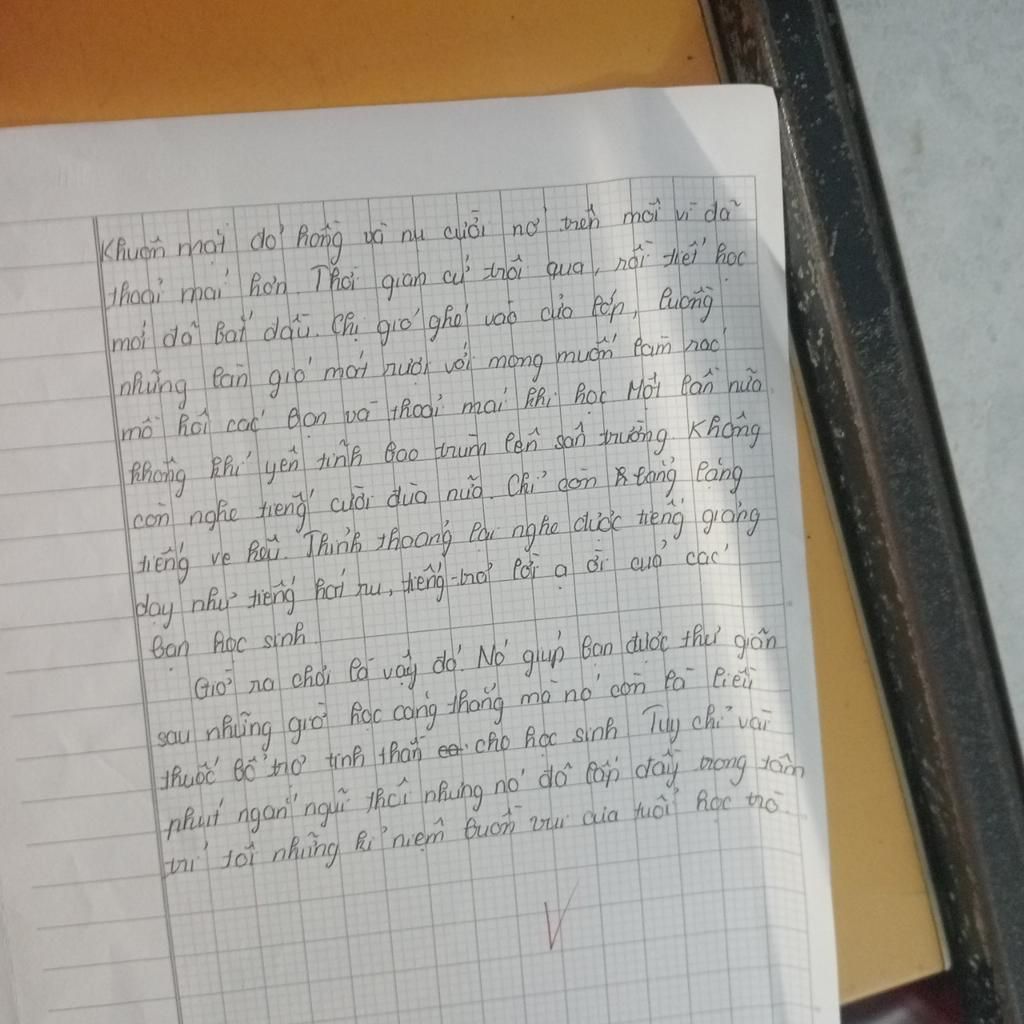 Khuôn mặt đỏ hồng và nụ cười nở trên môi vì đã
thoải mái hơn. Thời gian cứ trôi qua, rồi tiết học
mới đã bắt đầu. Chị gió ghé vào cửa lớp, luồng
những làn gió mát rượi với mong muốn làm ráo
mồ hôi các bạn và thoải mái khi học Một lần nữa
không khí yên tĩnh bao trùm lên sân trường. Không
còn nghe tiếng cười đùa nữa. Chỉ còn lẳng lặng
tiếng ve kêu. Thỉnh thoảng lại nghe được tiếng giảng
dạy như tiếng hát ru, tiếng trả lời ạ ời quả các
bạn học sinh
Giờ ra chơi là vậy đó. Nó giúp bạn được thư giãn
sau những giờ học căng thẳng mà nó còn là liều
thuốc bổ trợ tinh thần cho học sinh Tuy chỉ vài
phút ngắn ngủi thôi nhưng nó đã lấp đầy trong tâm
trí tôi những kỉ niệm buồn vui của tuổi học trò.